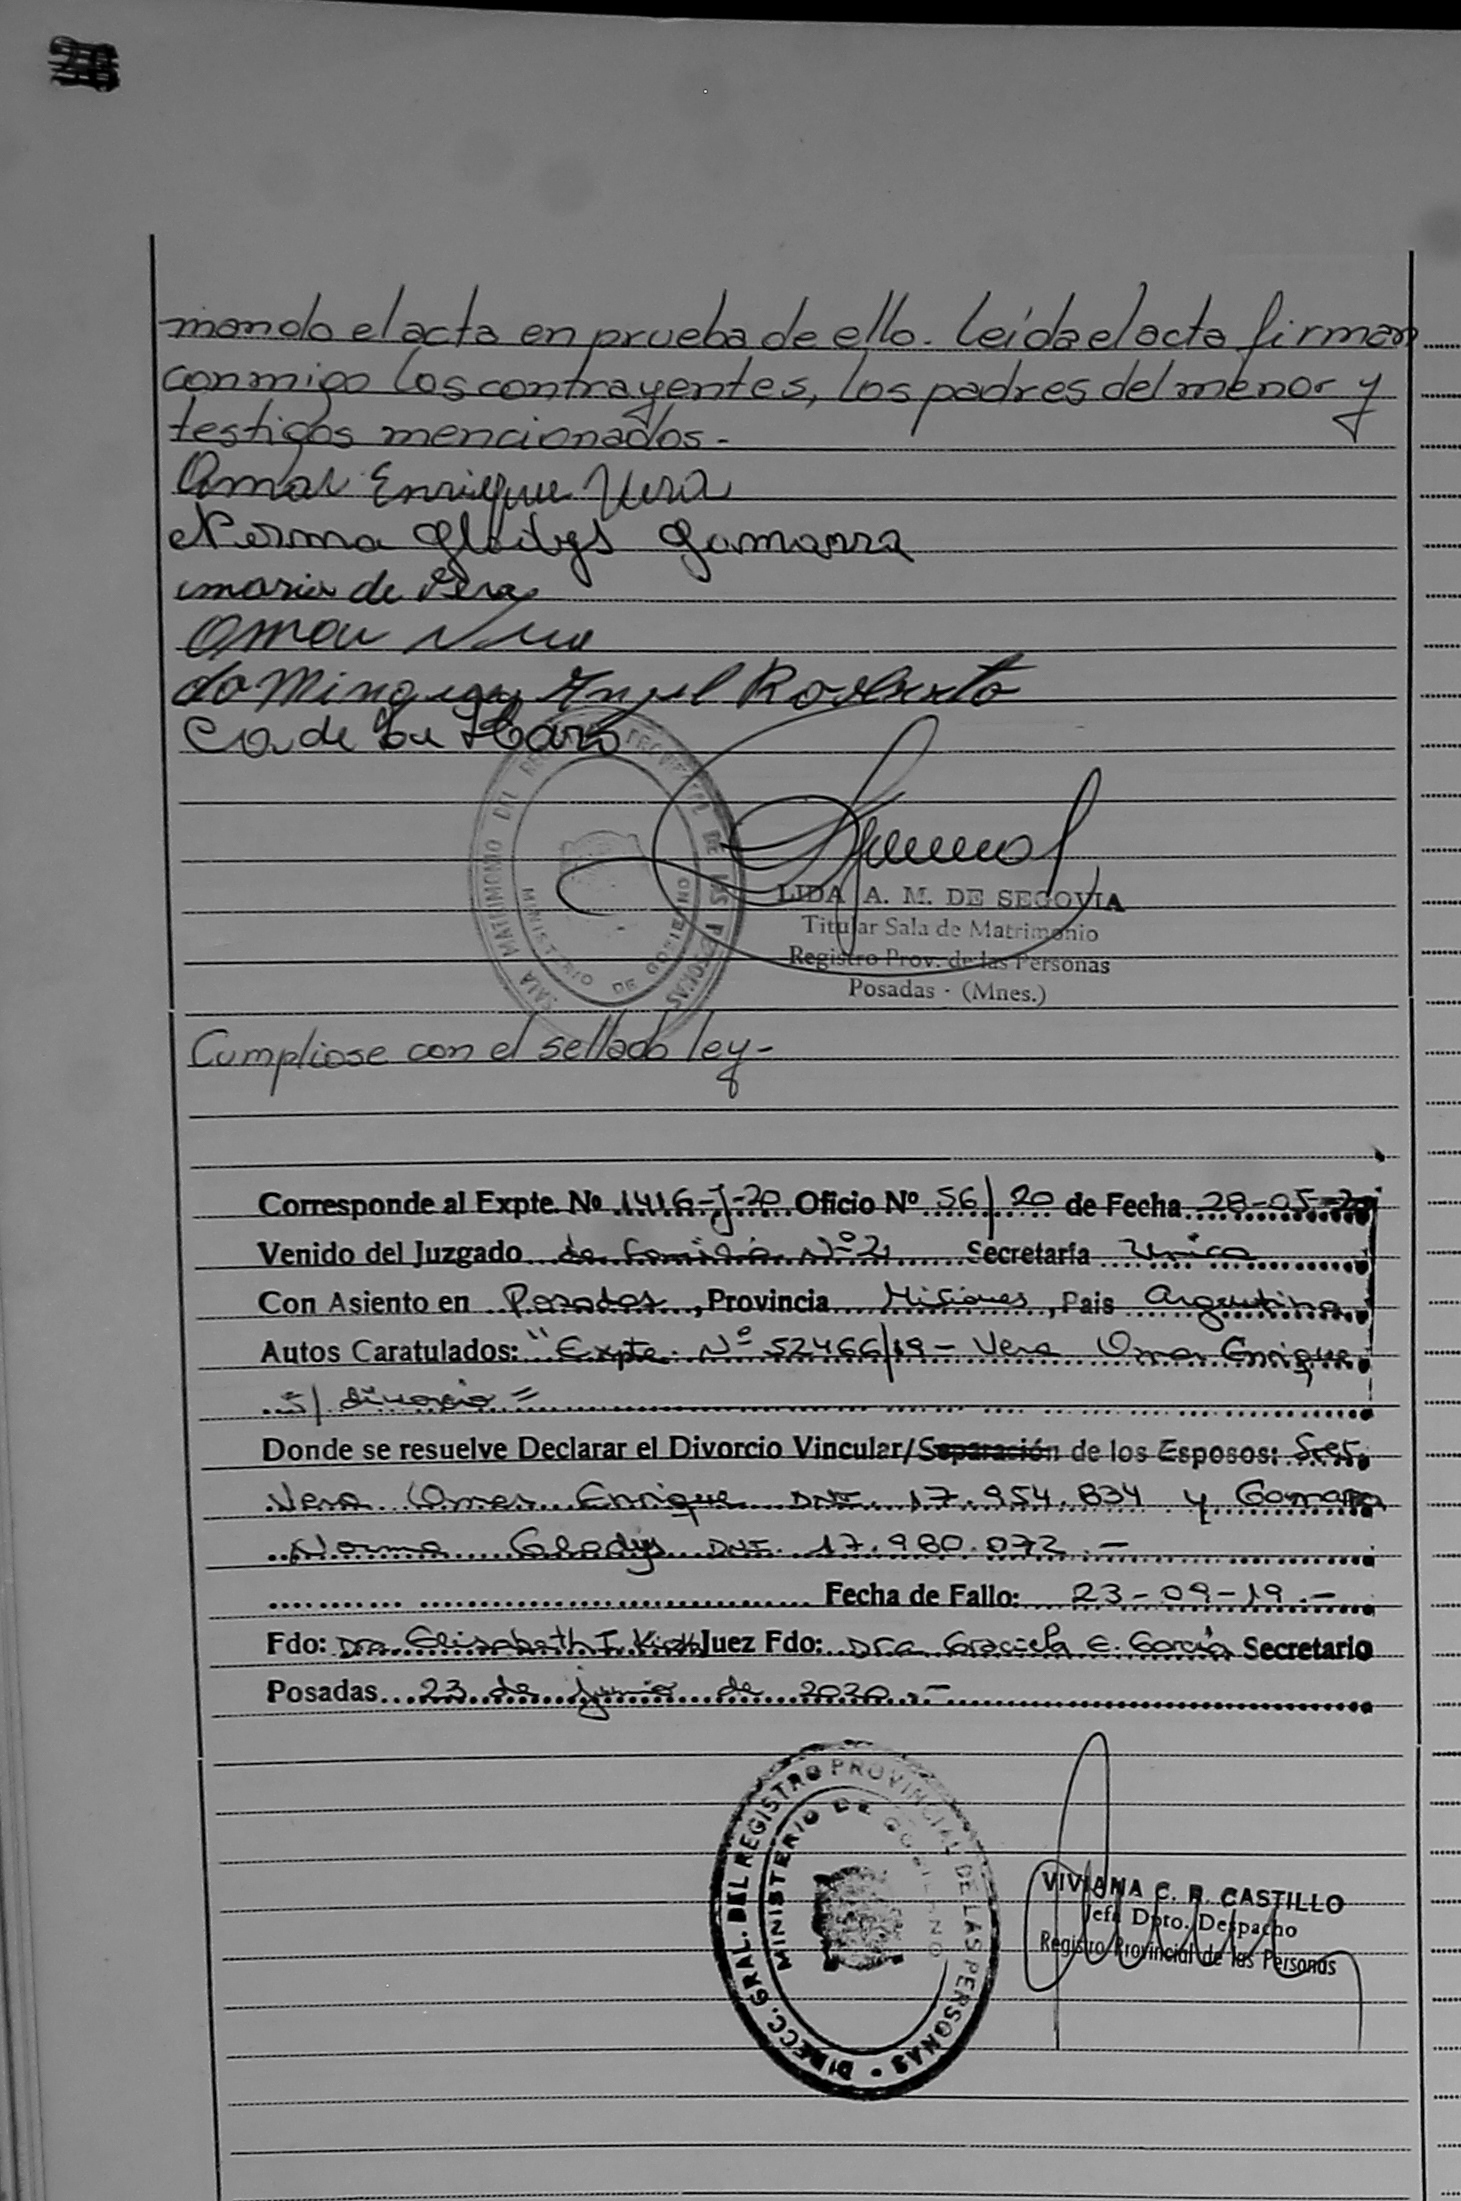 mando el acta en prueba de ello. Leída el acta firman
conmigo los contrayentes, los padres del menor y
testigos mencionados.-
Omar Enrique Vera
Norma Gladys Gamarra
maria de Vera
Omar Vera
Angel Roberto
SALA MATRIMONIO DEL REGISTRO PROVINCIAL DE LAS PERSONAS
MINISTERIO DE GOBIERNO
LIDA A. M. DE SEGOVIA
Titular Sala de Matrimonio
Registro Prov. de las Personas
Posadas - (Mnes.)
Cumpliose con el sellado ley-
Corresponde al Expte. Nº 1416-J-20 Oficio Nº 56/20 de Fecha 28-05-20
Venido del Juzgado de Familia Nº 2 Secretaría Unica
Con Asiento en Posadas, Provincia Misiones, Pais Argentina
Autos Caratulados: "Expte. Nº 52466/19 - Vera Omar Enrique
s/ divorcio =
Donde se resuelve Declarar el Divorcio Vincular/Separación de los Esposos: Sres.
Vera Omar Enrique DNI. 17.954.834 y Gamarra
Norma Gladys DNI. 17.980.072.-
Fecha de Fallo: 23-09-19.-
Fdo: Dra. Elisabeth I. Juez Fdo: Dra Graciela E. García Secretario
Posadas 23 de junio de 2020.-
DIRECC. GRAL. DEL REGISTRO PROVINCIAL DE LAS PERSONAS
MINISTERIO DE GOBIERNO
VIVIANA C. R. CASTILLO
Jefa Dpto. Despacho
Registro Provincial de las Personas